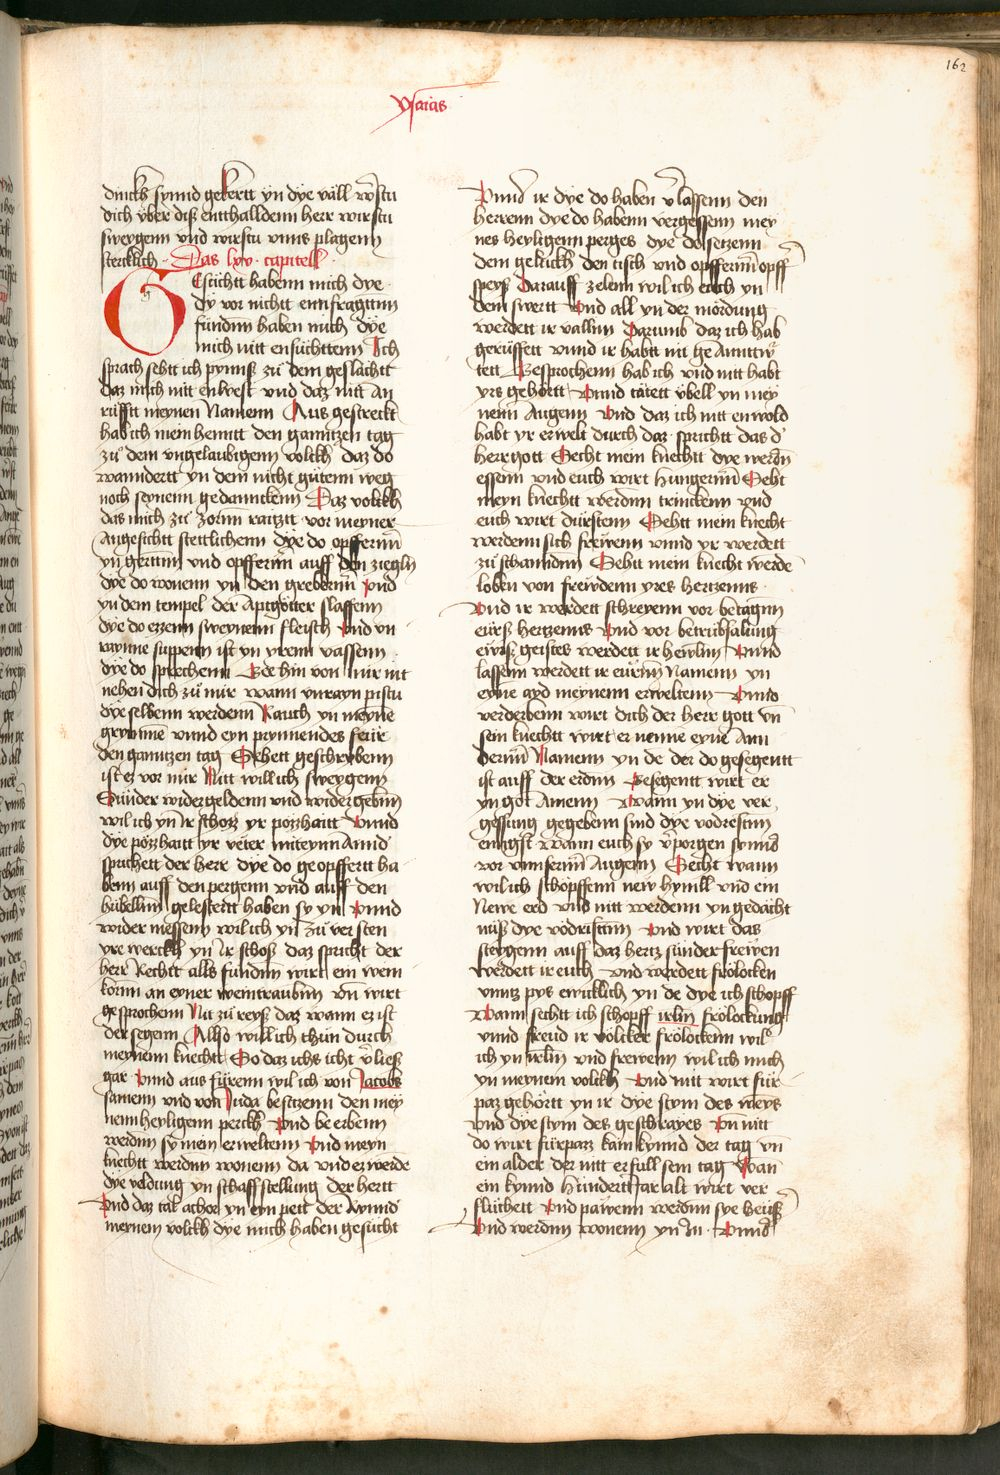 162
ysaias
dinckh synnd gekertt yn dye väll wirstu
dich vber diß entthalldenn herr wirstu
sweygenn vnd wirstu vnns plagenn
stercklich · Das lxv · capitell ·
Gesüchtt habenn mich dye ·
dy vor nichtt enttfragttnn
fundnn haben mich dye
mich nitt ensüchttenn Ich
sprach sehtt ich pynns zü dem geslächtt
daz mich nitt enwest vnd daz nitt an
rüfftt meynen Namenn Aus gestreckt
hab ich mein henntt den ganntzen tag
zü dem vngelaubigenn volckh daz do
wanndertt yn dem nicht gütenn weg
noch seynenn gedannckenn Daz volckh
das mich zü zornn raitztt vor meyner
Angesichtt stettlichenn dye do opffernn
yn gerttnn vnd opffernn auff den ziegln
dye do wonenn yn den grebernn vnd
yn dem tempel der Aptgötter slaffenn
dye do ezzenn sweynenn fleisch vnd vn
raynne suppenn ist yn yrenn vassenn ·
dye do sprechenn Gee hin von mir nit
nehen dich zü mir wann vnrayn pistu
dye selbenn werdenn Rauch yn meyne
grymme vnnd eyn prynnendes feür
den ganntzen tag Sehett geschrybenn
ist ez vor mir Nitt will ich sweygenn
Sunder widergeldenn vnd widergebnn
wil ich yn ir schozz yr pözzhaitt vnnd
dye pözzhaitt yr veter miteynnannd
sprichett der herr dye do geopffertt ha
benn auff den pergenn vnd auff den
hübellnn gelestertt haben sy yn vnnd
wider messenn wil ich yn zü ver sten
yre werckh yn ir schoß daz spricht der
herr Rechtt alls fundnn wirt ein wein
korn an eyner weintraubnn vnn wirt
gesprochenn Nit zü reyß daz wann ez ist
der segenn Allso will ich thün durch
meynenn knechtt So daz ichs icht v̓ließ
gar vnnd aus fürenn wil ich von Jacobs
samenn vnd von Juda besitzenn den mey
nenn heyligenn perckh vnd be erbenn
werdnn sy mein erweltenn vnd meyn
knechtt werdnn wonenn da vnd ez werde
dye veldung yn schaff stellung der hertt
vnd daz tal achor yn eyn pett der Rynnd
meynem volckh dye mich haben gesücht
Vnnd ir dye do haben v̓lassenn den
herrenn dye do habenn vergessenn mey
nes heyligenn perges dye do setzenn
dem gelückh den tisch vnd opffernn opff
speyß Darauff zelenn wil ich euch yn
dem swertt vnd all yn der mördung
werdett ir vallnn Darumb daz ich hab
gerüffett vnnd ir habtt nit geanttw
tett Gesprochenn hab ich vnd nitt habt
yrs gehörtt vnnd tätett vbell yn mey
nenn Augenn vnd daz ich nitt enwold
habt yr erwelt durch daz sprichtt das d̓
herr gott Secht mein knechtt dye werdn
essenn vnd euch wirt hungernn Seht
meyn knechtt werdnn trinckenn vnd
euch wirt dürstenn Sehtt mein knecht
werdenn sich freẅenn vnnd yr werdett
zü schanndnn Sehtt mein knecht werde
lobenn von freẅdenn yres hertzenns ·
vnd ir werdett schreyenn vor betagnn
eürß hertzenns vnd vor betrübsalung
eẅrs geistes werdett ir hewlnn vnnd
lassenn werdett ir eürnn Namenn yn
eyne ayd meynenn erweltenn vnnd
verderbenn wirt dich der herr gott vn
sein knechtt wirt er nenne eyne Ann
dernn Namenn yn de der do gesegentt
ist auff der erdnn Gesegentt wirt er
yn got Amenn Wann yn dye ver
gessung gegebenn sind dye vodrestnn
enngst wann euch sy v̓porgen synnd
vor vnnsernn Augenn Secht wann
wil ich schöpffenn new hymill vnd ein
Newe erd vnd nitt werdenn yn gedächt
nüß dye vödristnn vnd wirt das
steygenn auff daz hertz sünder frewen
werdett ir euch vnd werdett frölocken
vnntz pys ewicklich yn de dye ich schopff
Wann sechtt ich schopff irlm frölockung
vnnd freud ir völcker frölockenn wil
ich yn irlm vnd frewenn wil ich mich
yn meynem volckh vnd nitt wirt für
paz gehörtt yn ir dye stym des weyns
vnd dye stym des geschrayes vn nitt
do wirt fürpazz kain kynnd der tag vn
ein alder der nitt erfull sein tag Wan
ein kynnd hundertt Jar alt wirt ver
flüchett vnd paẅenn werdnn sye heüß
vnd werdnn wonenn yn in · vnnd